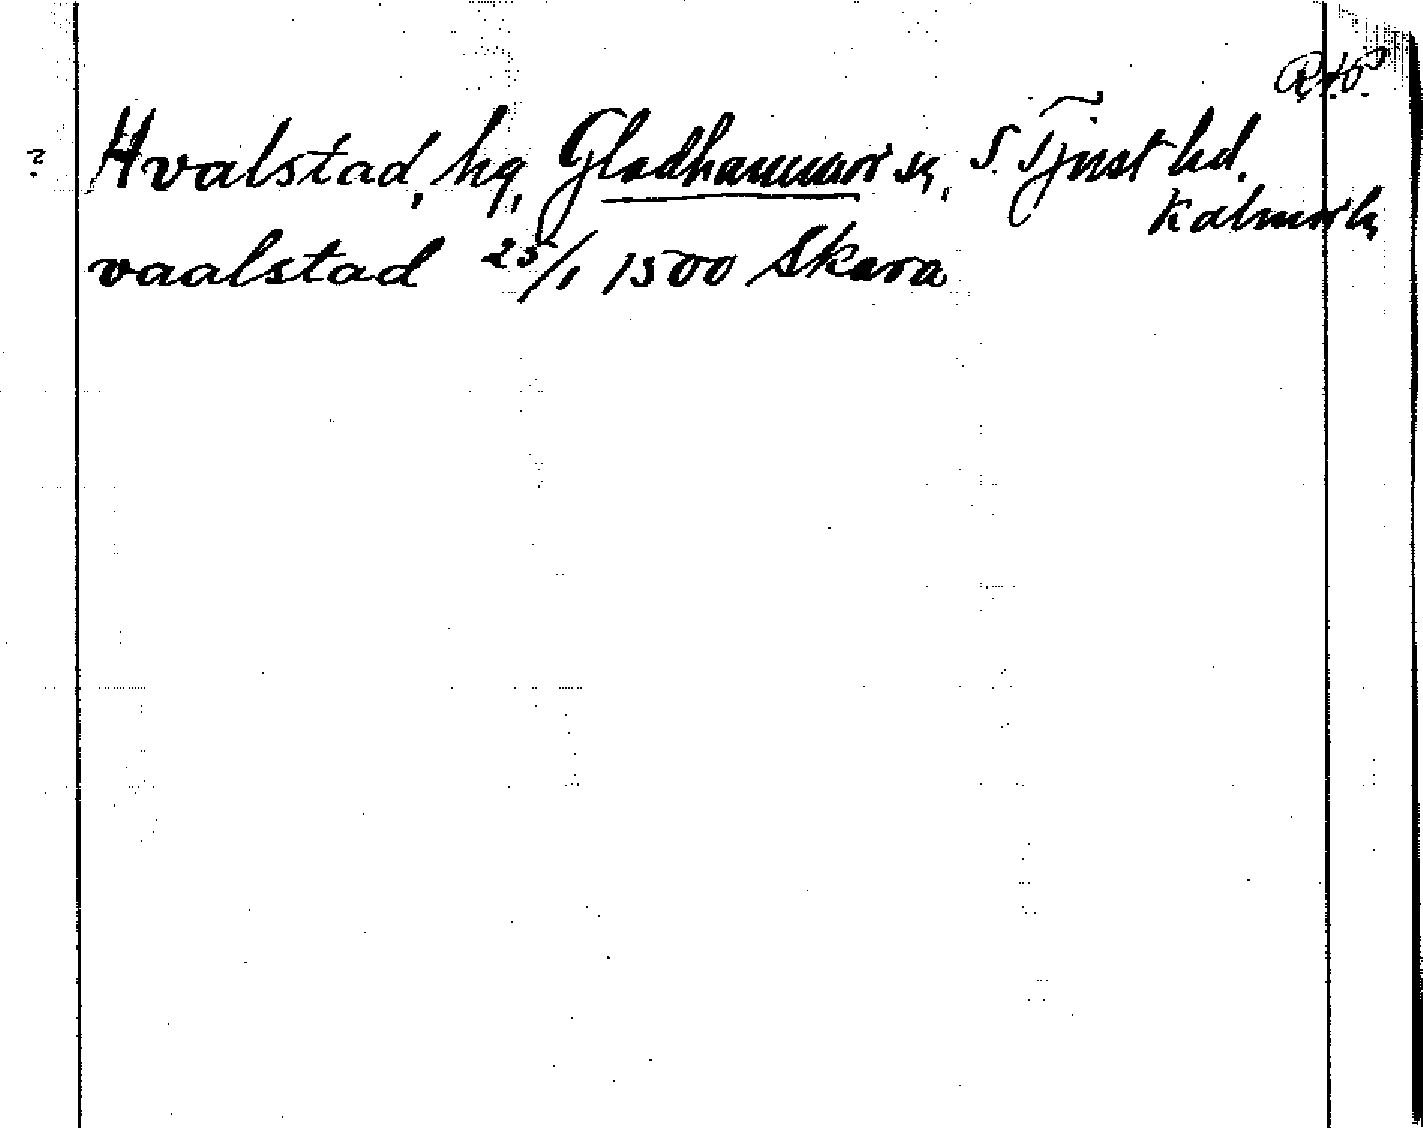 ? Hvalstad, hg, Gladhammar sn, S. Tjust hd.
Kalmar ln
vaalstad 25/1 1500 Skara